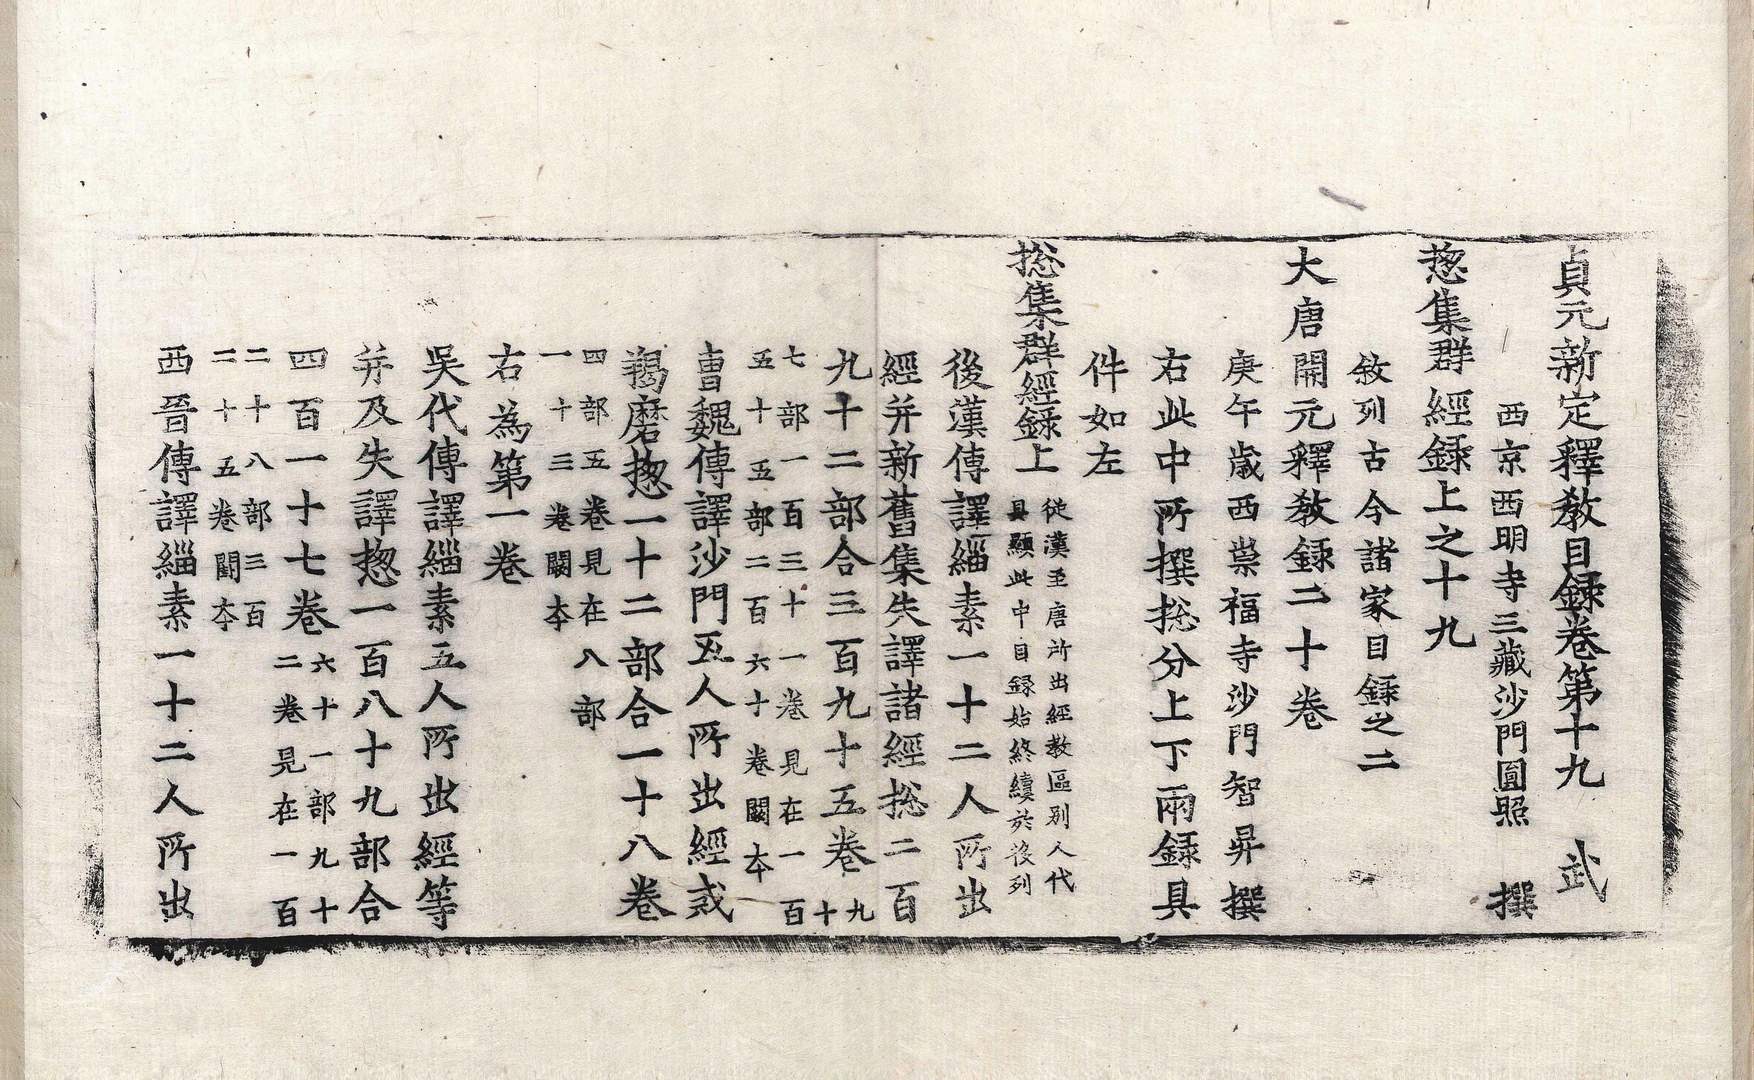 貞元新定釋教目録卷第十九　武
西京西明寺三藏沙門圓照　撰
惣集群經録上之十九
敘列古今諸家目録之二
大唐開元釋教録二十卷
庚午歲西崇福寺沙門智昇撰
右此中所撰揔分上下兩録具
件如左
揔集群經録上
從漢至唐所出經教區別人代
具顯此中自録始終續於後列
後漢傳譯緇素一十二人所出
經并新舊集失譯諸經揔二百
九十二部合三百九十五卷
九十
七部一百三十一卷見在一百
五十五部二百六十卷闕本
曹魏傳譯沙門五人所出經戒
羯磨惣一十二部合一十八卷
四部五卷見在八部
一十三卷闕本
右為第一卷
吳代傳譯緇素五人所出經等
并及失譯惣一百八十九部合
四百一十七卷
六十一部九十
二卷見在一百
二十八部三百
二十五卷闕本
西晉傳譯緇素一十二人所出